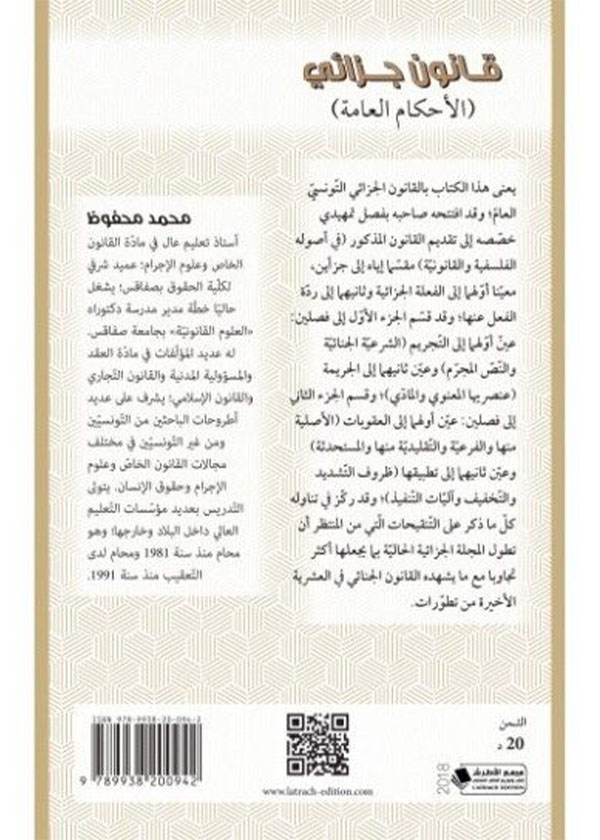 قانون جزائي
(الأحكام العامة)
يعنى هذا الكتاب بالقانون الجزائي التّونسيّ
العامّ؛ وقد افتتحه صاحبه بفصل تمهيدي
خصّصه إلى تقديم القانون المذكور (في أصوله
الفلسفية والقانونيّة) مقسّما إياه إلى جزأين،
معيّنا أوّلهما إلى الفعلة الجزائية وثانيهما إلى ردّة
الفعل عنها؛ وقد قسّم الجزء الأوّل إلى فصلين:
عيّن أوّلهما إلى التّجريم (الشرعيّة الجنائيّة
والنّصّ المجرّم) وعيّن ثانيهما إلى الجريمة
(عنصريها المعنوي والمادّي)؛ وقسم الجزء الثاني
إلى فصلين: عيّن أولهما إلى العقوبات (الأصلية
منها والفرعيّة والتّقليديّة منها والمستحدثة)
وعيّن ثانيهما إلى تطبيقها (ظروف التّشديد
والتّخفيف وآليّات التّنفيذ)؛ وقد ركّز في تناوله
كلّ ما ذكر على التّنقيحات الّتي من المنتظر أن
تطول المجلة الجزائية الحاليّة بما يجعلها أكثر
تجاوبا مع ما يشهده القانون الجنائي في العشرية
الأخيرة من تطوّرات.
محمد محفوظ
أستاذ تعليم عال في مادّة القانون
الخاص وعلوم الإجرام؛ عميد شرفي
لكلّية الحقوق بصفاقس؛ يشغل
حاليّا خطّة مدير مدرسة دكتوراه
«العلوم القانونيّة» بجامعة صفاقس.
له عديد المؤلّفات في مادّة العقد
والمسؤولية المدنية والقانون التّجاري
والقانون الإسلامي؛ يشرف على عديد
أطروحات الباحثين من التّونسيّين
ومن غير التّونسيّين في مختلف
مجالات القانون الخاصّ وعلوم
الإجرام وحقوق الإنسان. يتولى
التّدريس بعديد مؤسّسات التّعليم
العالي داخل البلاد وخارجها؛ وهو
محام منذ سنة 1981 ومحام لدى
التّعقيب منذ سنة 1991.
الثمن
20 د
2018
مجمع الأطرش
LATRACH EDITION
www.latrach-edition.com
ISBN 978-9938-20-094-2
9 789938 200942